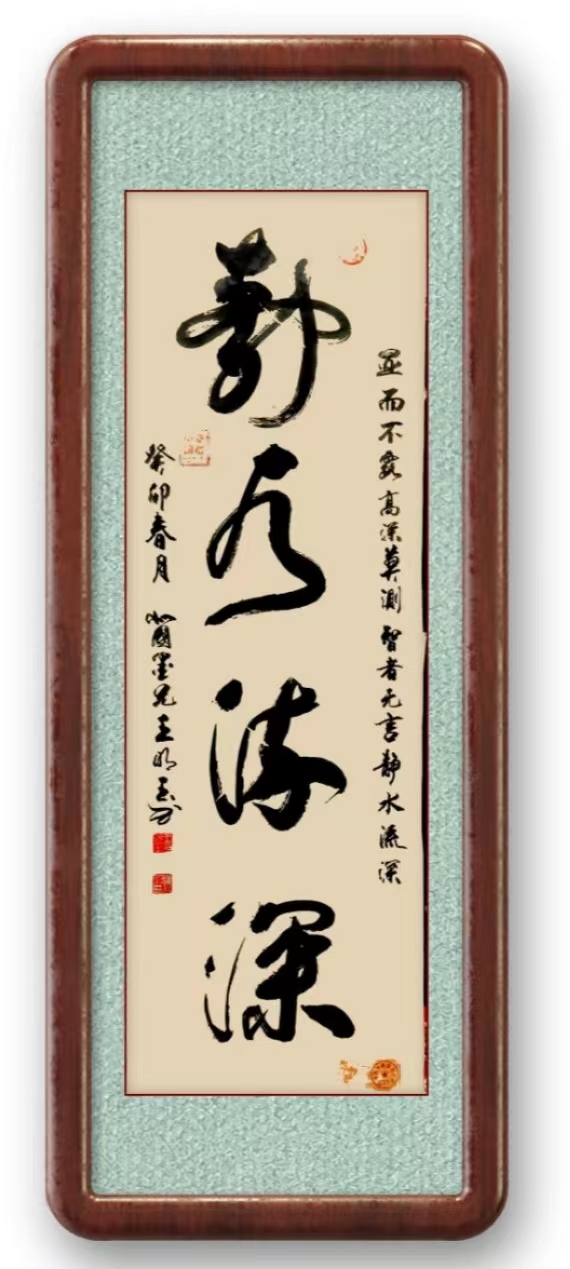 显而不露高深莫测 智者无言静水流深
静水流深
癸卯春月 園墨 王明玉书